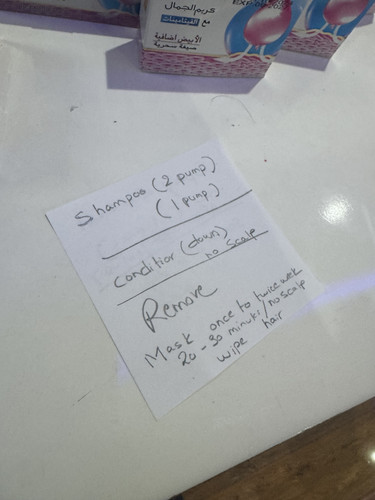 كريم الجمال
مع
الأبيض إضافية
صيغة سحرية
Shampoo (2 pump)
(1 pump)
Conditior (down)
no scalp
Remove
Mask once to twice wek
20 - 30 minuts / no scalp
wipe hair